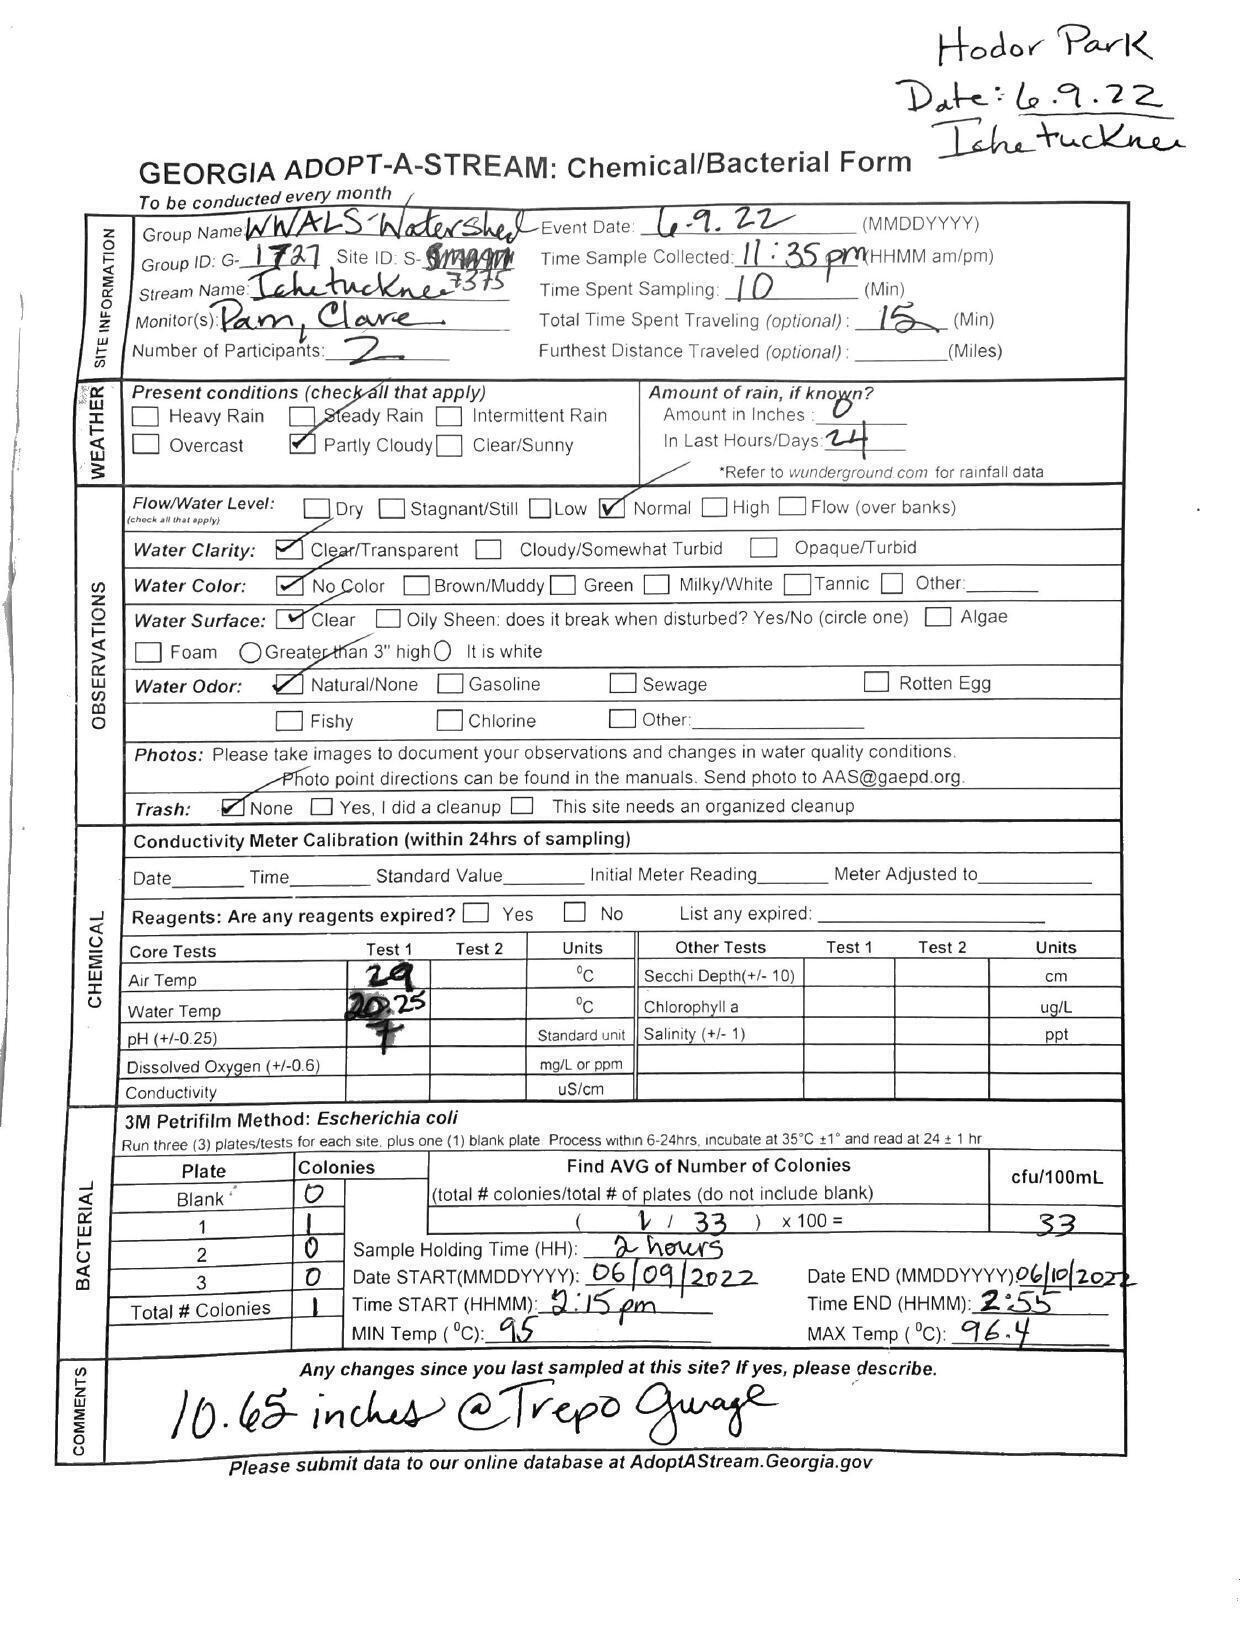 Hodor Park
Date: 6.9.22
Ichetucknee
GEORGIA ADOPT-A-STREAM: Chemical/Bacterial Form
To be conducted every month
SITE INFORMATION
Group Name: WWALS Watershed Event Date: 6.9.22 (MMDDYYYY)
Group ID: G- 1727 Site ID: S- 7375 Time Sample Collected: 11:35 pm (HHMM am/pm)
Stream Name: Ichetucknee Time Spent Sampling: 10 (Min)
Monitor(s): Pam, Clare Total Time Spent Traveling (optional) : 15 (Min)
Number of Participants: 2 Furthest Distance Traveled (optional) : (Miles)
WEATHER
Present conditions (check all that apply) Amount of rain, if known?
Heavy Rain Steady Rain Intermittent Rain Amount in Inches : 0
Overcast Partly Cloudy Clear/Sunny In Last Hours/Days: 24
*Refer to wunderground.com for rainfall data
OBSERVATIONS
Flow/Water Level: Dry Stagnant/Still Low Normal High Flow (over banks)
(check all that apply)
Water Clarity: Clear/Transparent Cloudy/Somewhat Turbid Opaque/Turbid
Water Color: No Color Brown/Muddy Green Milky/White Tannic Other:
Water Surface: Clear Oily Sheen: does it break when disturbed? Yes/No (circle one) Algae
Foam Greater than 3" high It is white
Water Odor: Natural/None Gasoline Sewage Rotten Egg
Fishy Chlorine Other:
Photos: Please take images to document your observations and changes in water quality conditions.
Photo point directions can be found in the manuals. Send photo to AAS@gaepd.org.
Trash: None Yes, I did a cleanup This site needs an organized cleanup
CHEMICAL
Conductivity Meter Calibration (within 24hrs of sampling)
Date Time Standard Value Initial Meter Reading Meter Adjusted to
Reagents: Are any reagents expired? Yes No List any expired:
Core Tests Test 1 Test 2 Units Other Tests Test 1 Test 2 Units
Air Temp 29 °C Secchi Depth(+/- 10) cm
Water Temp 20.25 °C Chlorophyll a ug/L
pH (+/-0.25) 7 Standard unit Salinity (+/- 1) ppt
Dissolved Oxygen (+/-0.6) mg/L or ppm
Conductivity uS/cm
BACTERIAL
3M Petrifilm Method: Escherichia coli
Run three (3) plates/tests for each site, plus one (1) blank plate. Process within 6-24hrs, incubate at 35°C ±1° and read at 24 ± 1 hr
Plate Colonies Find AVG of Number of Colonies cfu/100mL
Blank 0 (total # colonies/total # of plates (do not include blank)
1 1 ( 1 / 33 ) x 100 = 33
2 0 Sample Holding Time (HH): 2 hours
3 0 Date START(MMDDYYYY): 06/09/2022 Date END (MMDDYYYY) 06/10/2022
Total # Colonies 1 Time START (HHMM): 2:15 pm Time END (HHMM): 2:55
MIN Temp ( °C): 95 MAX Temp ( °C): 96.4
COMMENTS
Any changes since you last sampled at this site? If yes, please describe.
10.62 inches @ Trepo Gwage
Please submit data to our online database at AdoptAStream.Georgia.gov